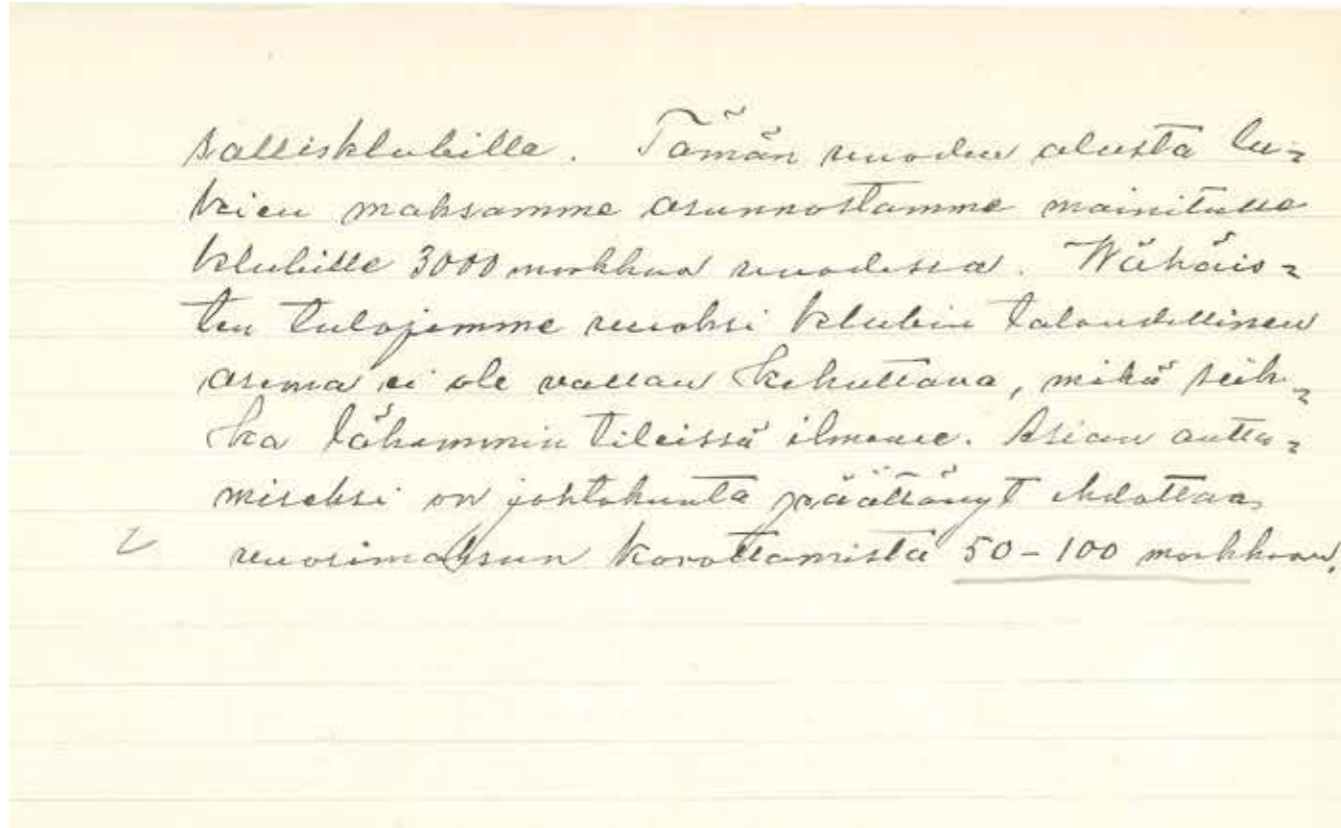 sallisklubille. Tämän vuoden alusta lu=
kien maksamme asunnostamme mainitulle
klubille 3000 markkaa vuodessa. Wähäis=
ten tulojemme vuoksi klubin taloudellinen
asema ei ole vallan kehuttava, mikä seik=
ka lähemmin tileissä ilmenee. Asian autta=
miseksi on johtokunta päättänyt ehdottaa
vuosimaksun korottamista 50-100 markkaan.